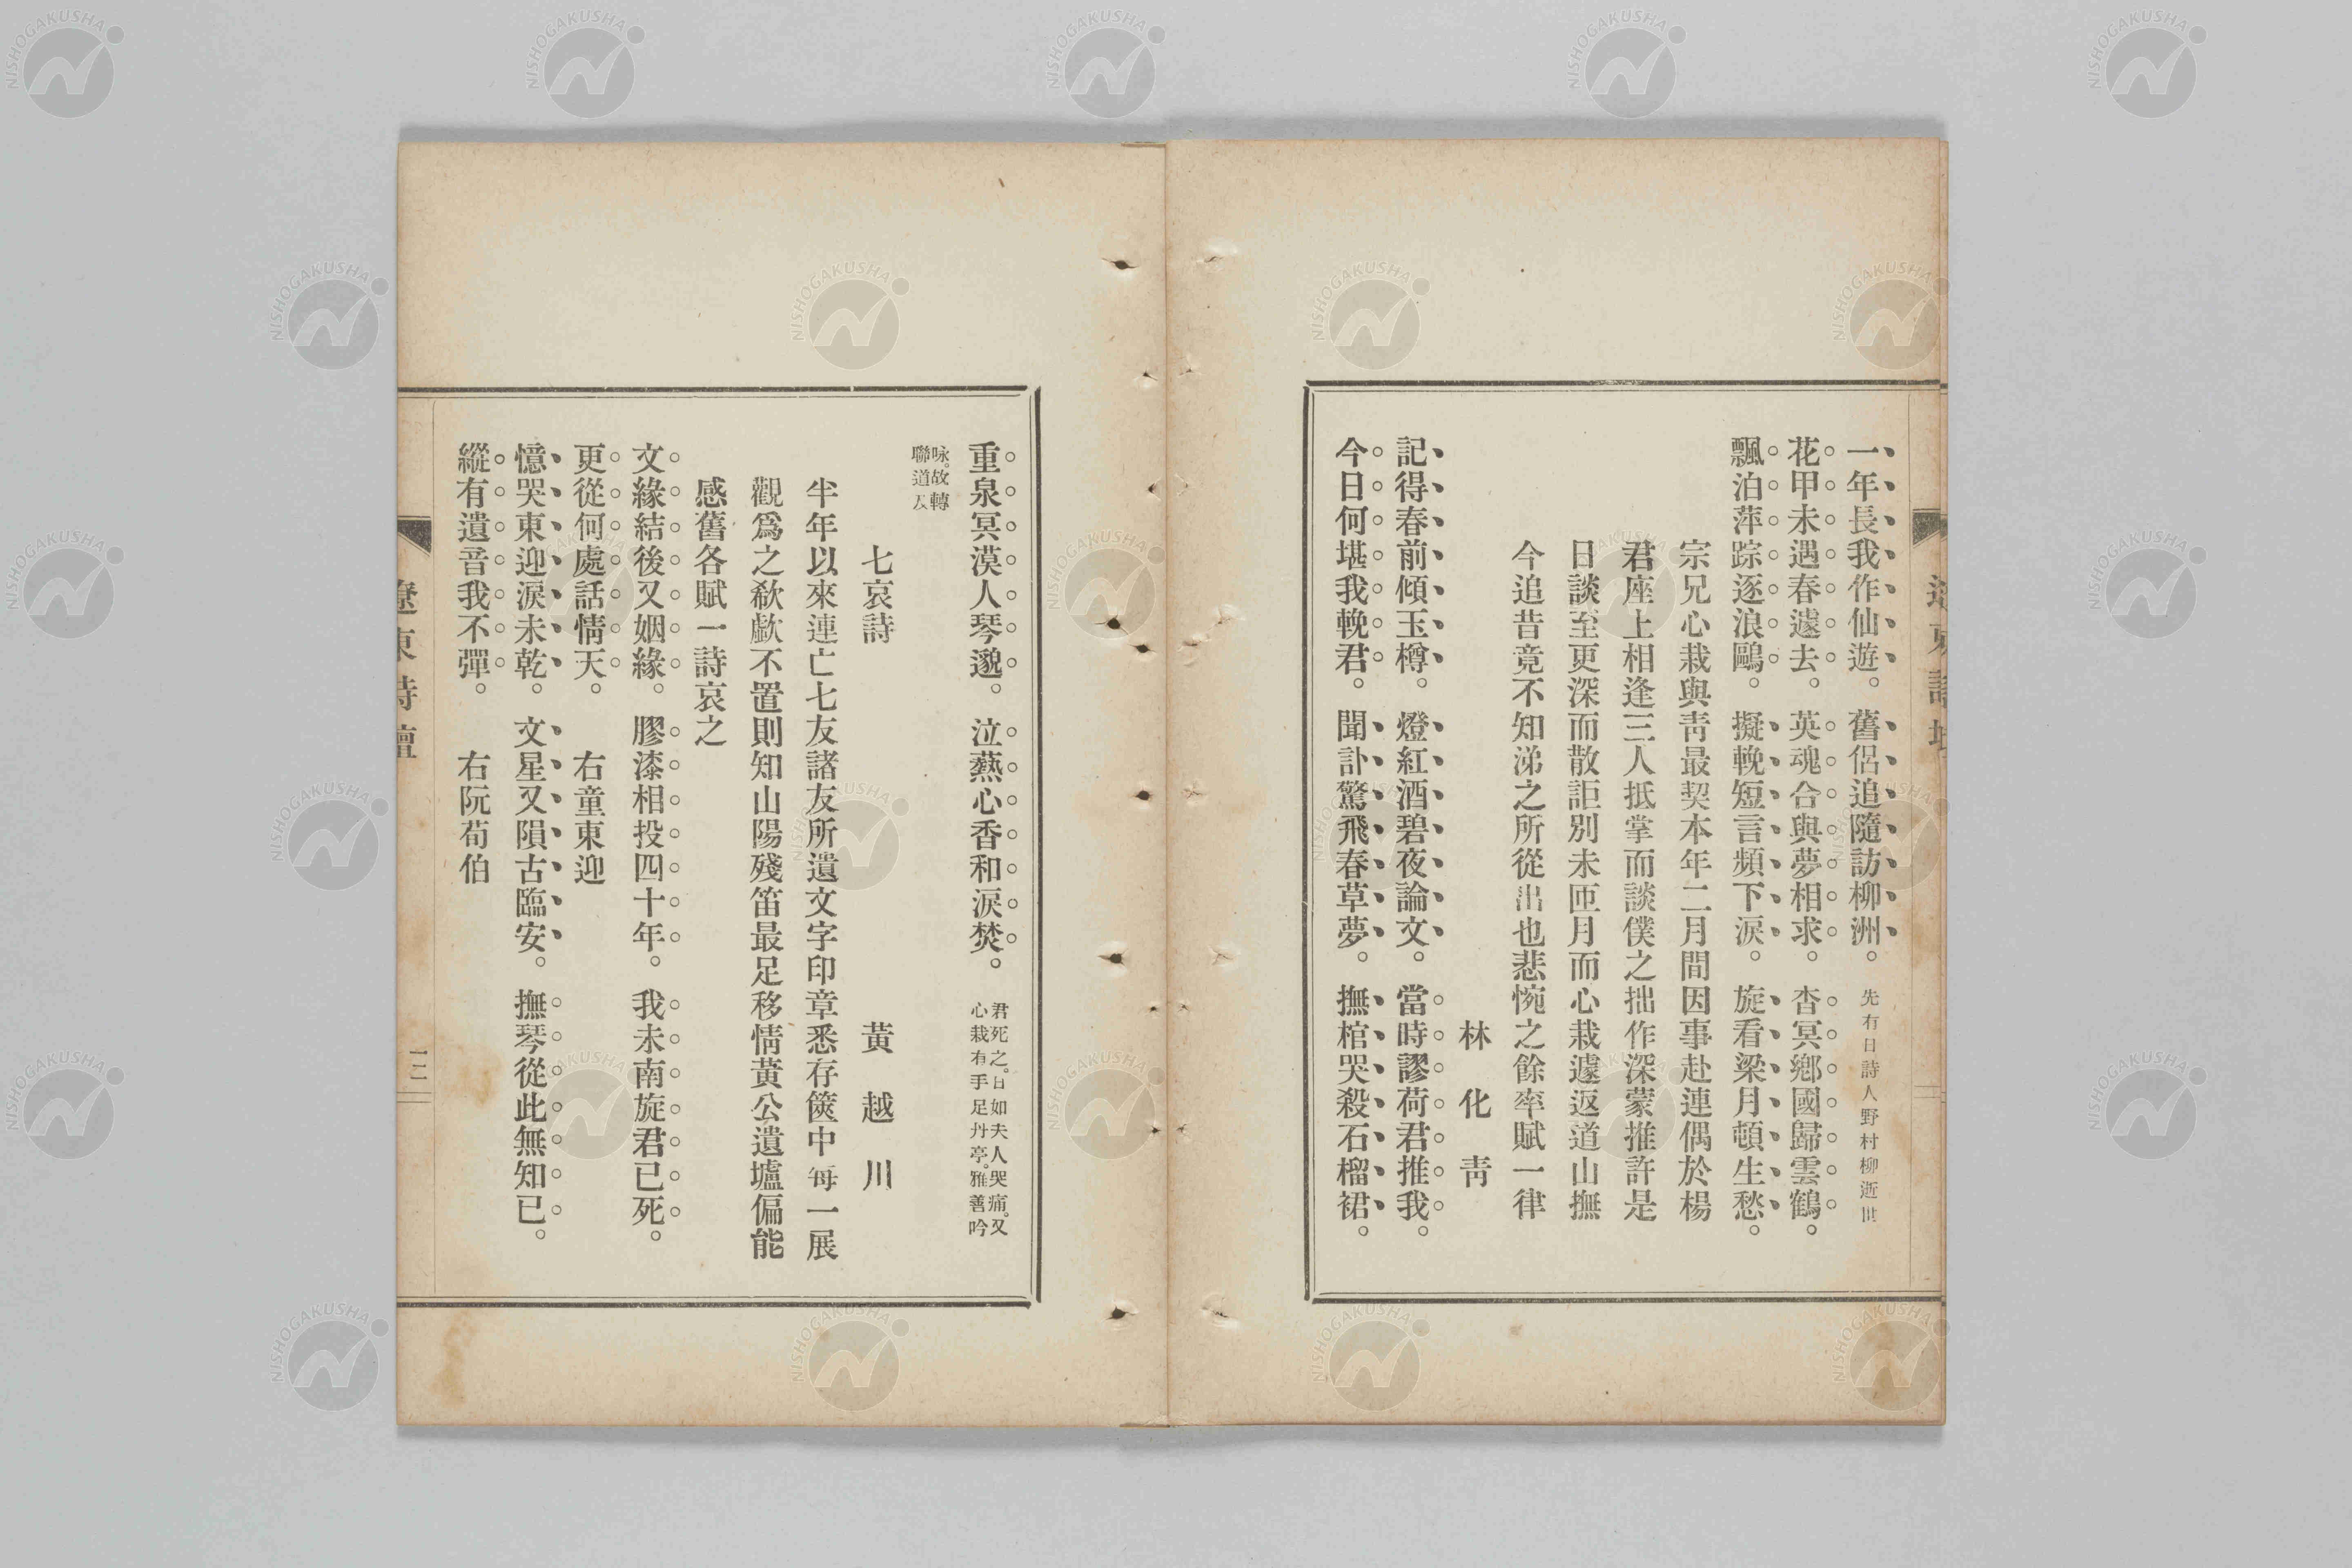 一年長我作仙遊。舊侶追隨訪柳洲。先有日詩人野村柳逝世
花甲未遇春遽去。英魂合與夢相求。杳冥鄉國歸雲鶴。
飄泊萍踪逐浪鷗。擬輓短言頻下淚。旋看梁月頓生愁。
宗兄心栽與靑最契本年二月間因事赴連偶於楊
君座上相逢三人抵掌而談僕之拙作深蒙推許是
日談至更深而散詎別未匝月而心栽遽返道山撫
今追昔竟不知涕之所從出也悲惋之餘率賦一律
林化靑
記得春前傾玉樽。燈紅酒碧夜論文。當時謬荷君推我。
今日何堪我輓君。聞訃驚飛春草夢。撫棺哭殺石榴裙。
重泉冥漠人琴邈。泣爇心香和淚焚。君死之。日如夫人哭痛。又
心栽有手足丹亭。雅善吟
咏。故轉
聯道及
七哀詩
黃越川
半年以來連亡七友諸友所遺文字印章悉存篋中每一展
觀爲之欷歔不置則知山陽殘笛最足移情黃公遺壚偏能
感舊各賦一詩哀之
文緣結後又姻緣。膠漆相投四十年。我未南旋君已死。
更從何處話情天。右童東迎
憶哭東迎淚未乾。文星又隕古臨安。撫琴從此無知已。
縱有遺音我不彈。右阮荀伯
遼東詩壇
NISHOGAKUSHA